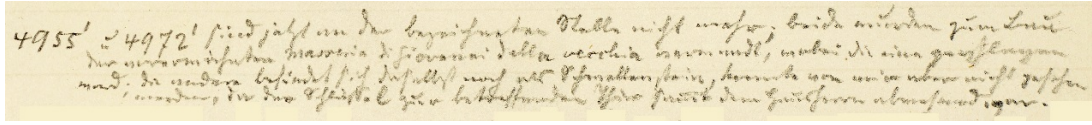 4955' u 4972' sind jetzt an der bezeichneten Stelle nicht mehr; beide wurden zum Bau
der unvermeidlichen Masseria di Giovanni della vecchia verwandt, wobei die eine zerschlagen
ward; die andere befindet sich daselbst noch als Schwellenstein, konnte von mir aber nicht gesehen
werden, da der Schlüssel zur betreffenden Thür sammt dem Hausherrn abwesend war.